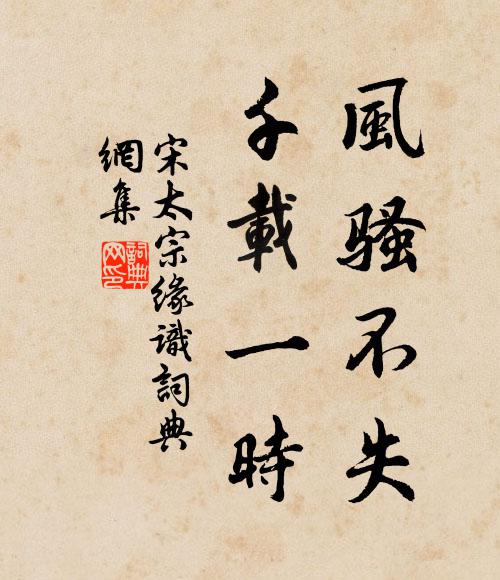 風騷不失
千載一時
宋太宗緣識詞典
網集
詞典網印